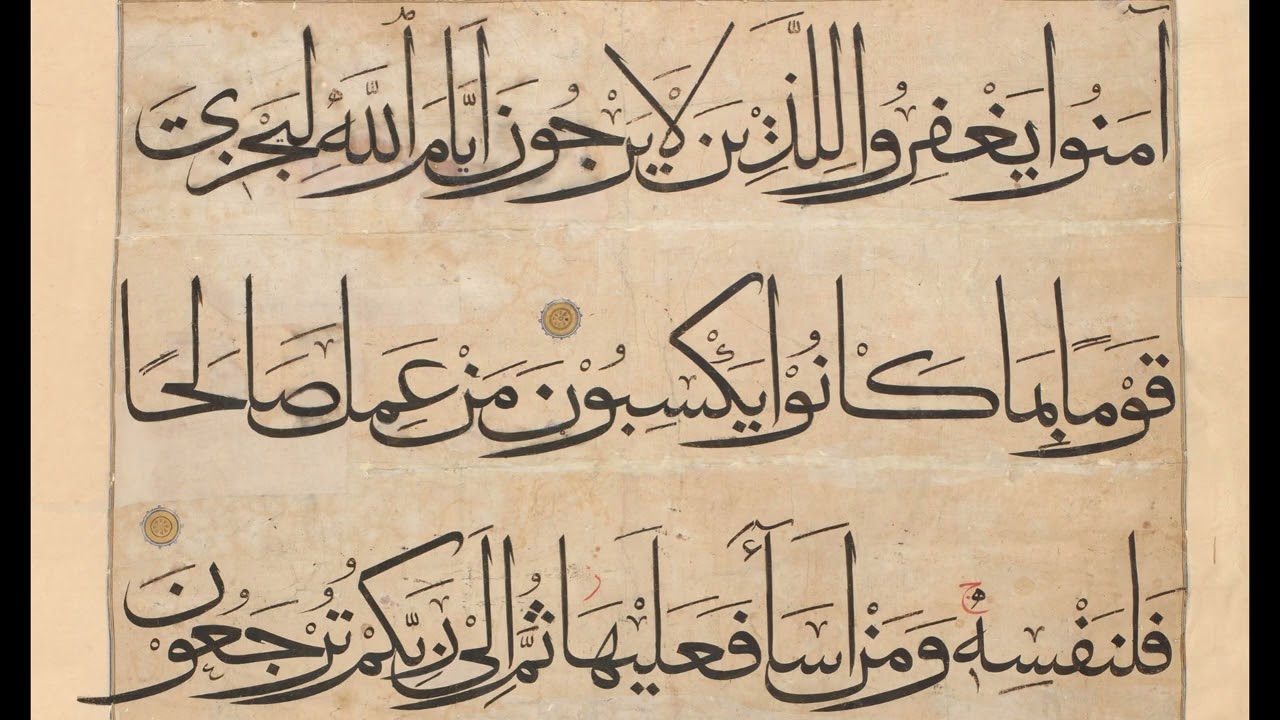 آمَنُوا يَغْفِرُوا لِلَّذِينَ لَا يَرْجُونَ أَيَّامَ اللَّهِ لِيَجْزِيَ
قَوْمًا بِمَا كَانُوا يَكْسِبُونَ مَنْ عَمِلَ صَالِحًا
فَلِنَفْسِهِ ج وَمَنْ أَسَآءَ فَعَلَيْهَا ز ثُمَّ إِلَىٰ رَبِّكُمْ تُرْجَعُونَ